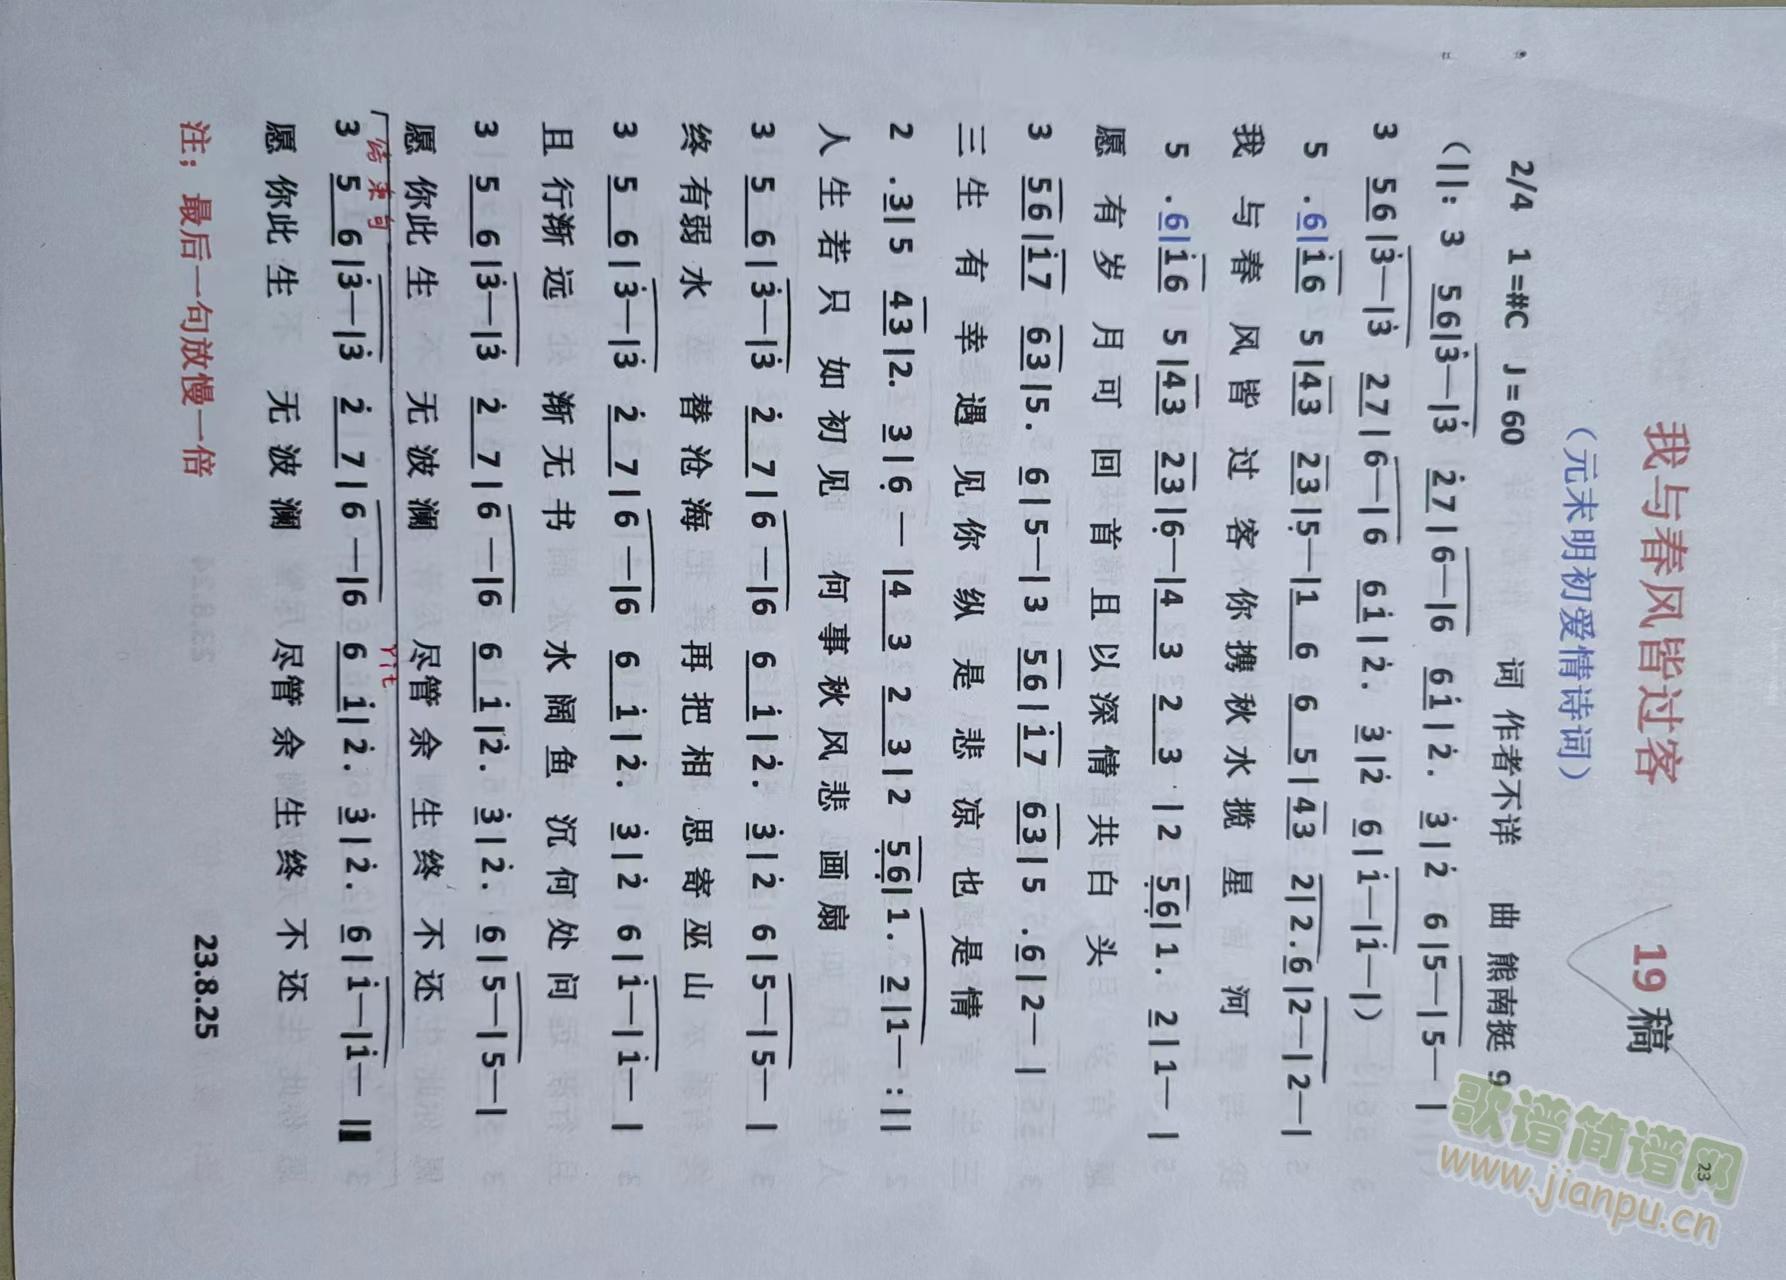 我与春风皆过客 19稿
（元末明初爱情诗词）
2/4 1=#C J=60 词 作者不详 曲 熊南挺 9
(||: 3 56|3̇—|3̇ 2̇7|6—|6 61̇|2̇. 3̇|2̇ 6|5—|5—|
3 56|3̇—|3̇ 27|6—|6 61̇|2̇. 3̇|2̇ 6|1̇—|1̇—|)
5 .6|1̇6 5|43 23|5̣—|1 6 6 5|43 2|2.6|2—|2—|
我与春风皆过客你携秋水揽星河
5 .6|1̇6 5|43 23|6̣—|4 3 2 3|2 5̣6̣|1. 2|1—|
愿有岁月可回首且以深情共白头
3 56|1̇7 63|5. 6|5—|3 56|1̇7 63|5.6|2—|
三生有幸遇见你纵是悲凉也是情
2 .3|5 43|2. 3|6̣ —|4 3 2 3|2 5̣6̣|1. 2|1—:||
人生若只如初见 何事秋风悲画扇
3 5 6|3̇—|3̇ 2̇ 7|6—|6 6 1̇|2̇. 3̇|2̇ 6|5—|5—|
终有弱水 替沧海 再把相思寄巫山
3 5 6|3̇—|3̇ 2̇ 7|6—|6 6 1̇|2̇. 3̇|2̇ 6|1̇—|1̇—|
且行渐远 渐无书 水阔鱼沉何处问
3 5 6|3̇—|3̇ 2̇ 7|6—|6 6 1̇|2̇. 3̇|2̇. 6|5—|5—|
愿你此生 无波澜 尽管余生终不还
结束句 rit
3 5 6|3̇—|3̇ 2̇ 7|6—|6 6 1̇|2̇. 3̇|2̇. 6|1̇—|1̇—||
愿你此生 无波澜 尽管余生终不还
注；最后一句放慢一倍 23.8.25
23
歌谱简谱网
www.jianpu.cn